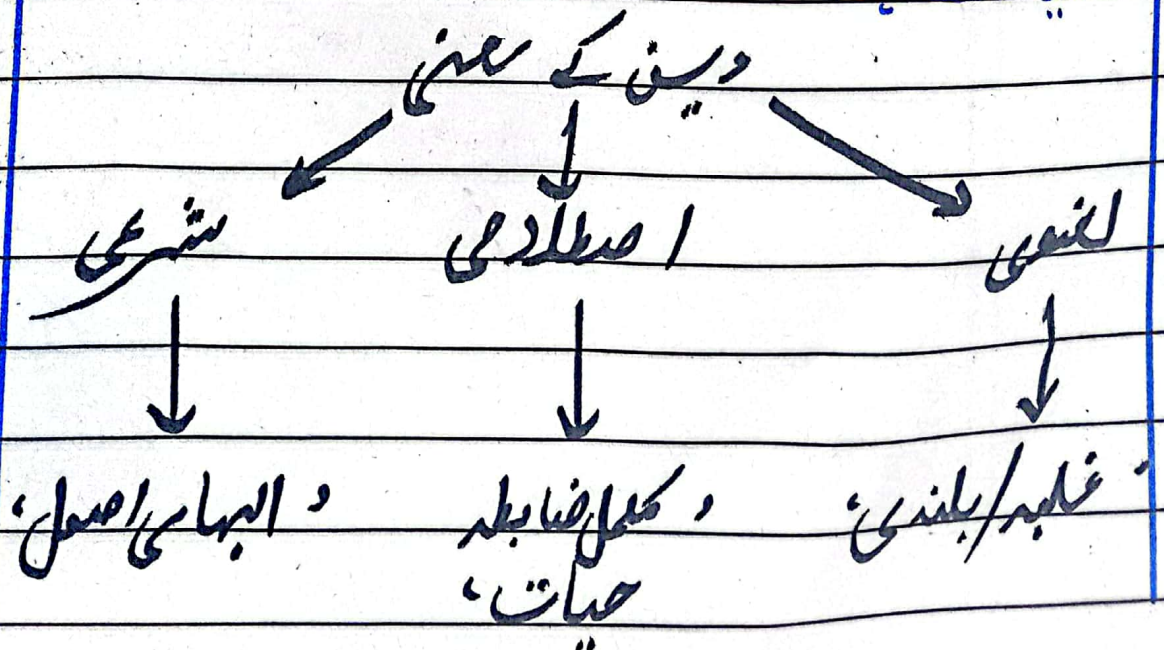 دین کے معنی
لغوی اصطلاحی شرعی
، غلبہ/بلندی، ، مکمل ضابطہ ، الہامی اصول،
حیات،